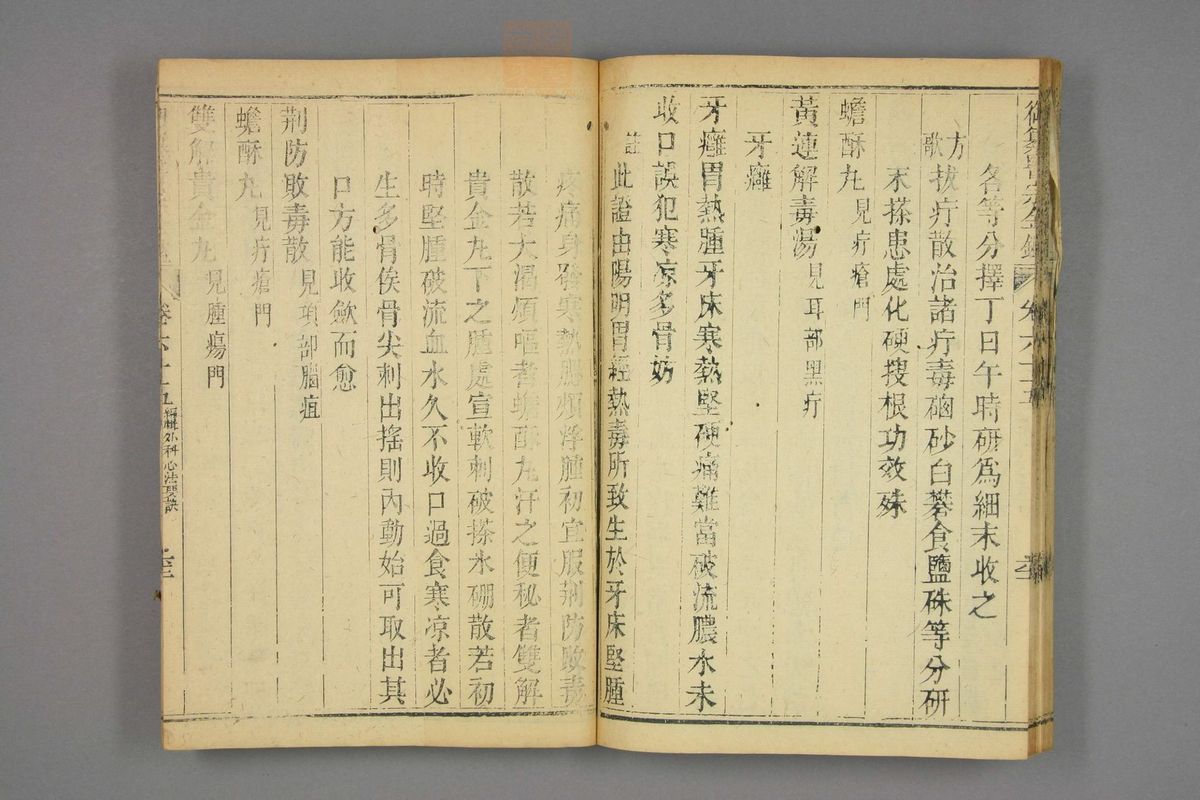 御纂醫宗金鑑 卷六十五
各等分擇丁日午時研爲細末收之
方歌 拔疔散治諸疔毒硇砂白礬食鹽硃等分研
末搽患處化硬搜根功效殊
蟾酥丸 見疔瘡門
黃連解毒湯 見耳部黑疔
牙癰
牙癰胃熱腫牙床寒熱堅硬痛難當破流膿水未
收口誤犯寒凉多骨妨
註 此證由陽明胃經熱毒所致生於牙床堅腫
疼痛身發寒熱腮頰浮腫初宜服荆防敗毒
散若大渴煩嘔者蟾酥丸汗之便秘者雙解
貴金丸下之腫處宣軟刺破搽氷硼散若初
時堅腫破流血水久不收口過食寒凉者必
生多骨俟骨尖刺出搖則內動始可取出其
口方能收斂而愈
荆防敗毒散 見項部腦疽
蟾酥丸 見疔瘡門
雙解貴金丸 見腫瘍門
卷六十五 編輯外科心法要訣